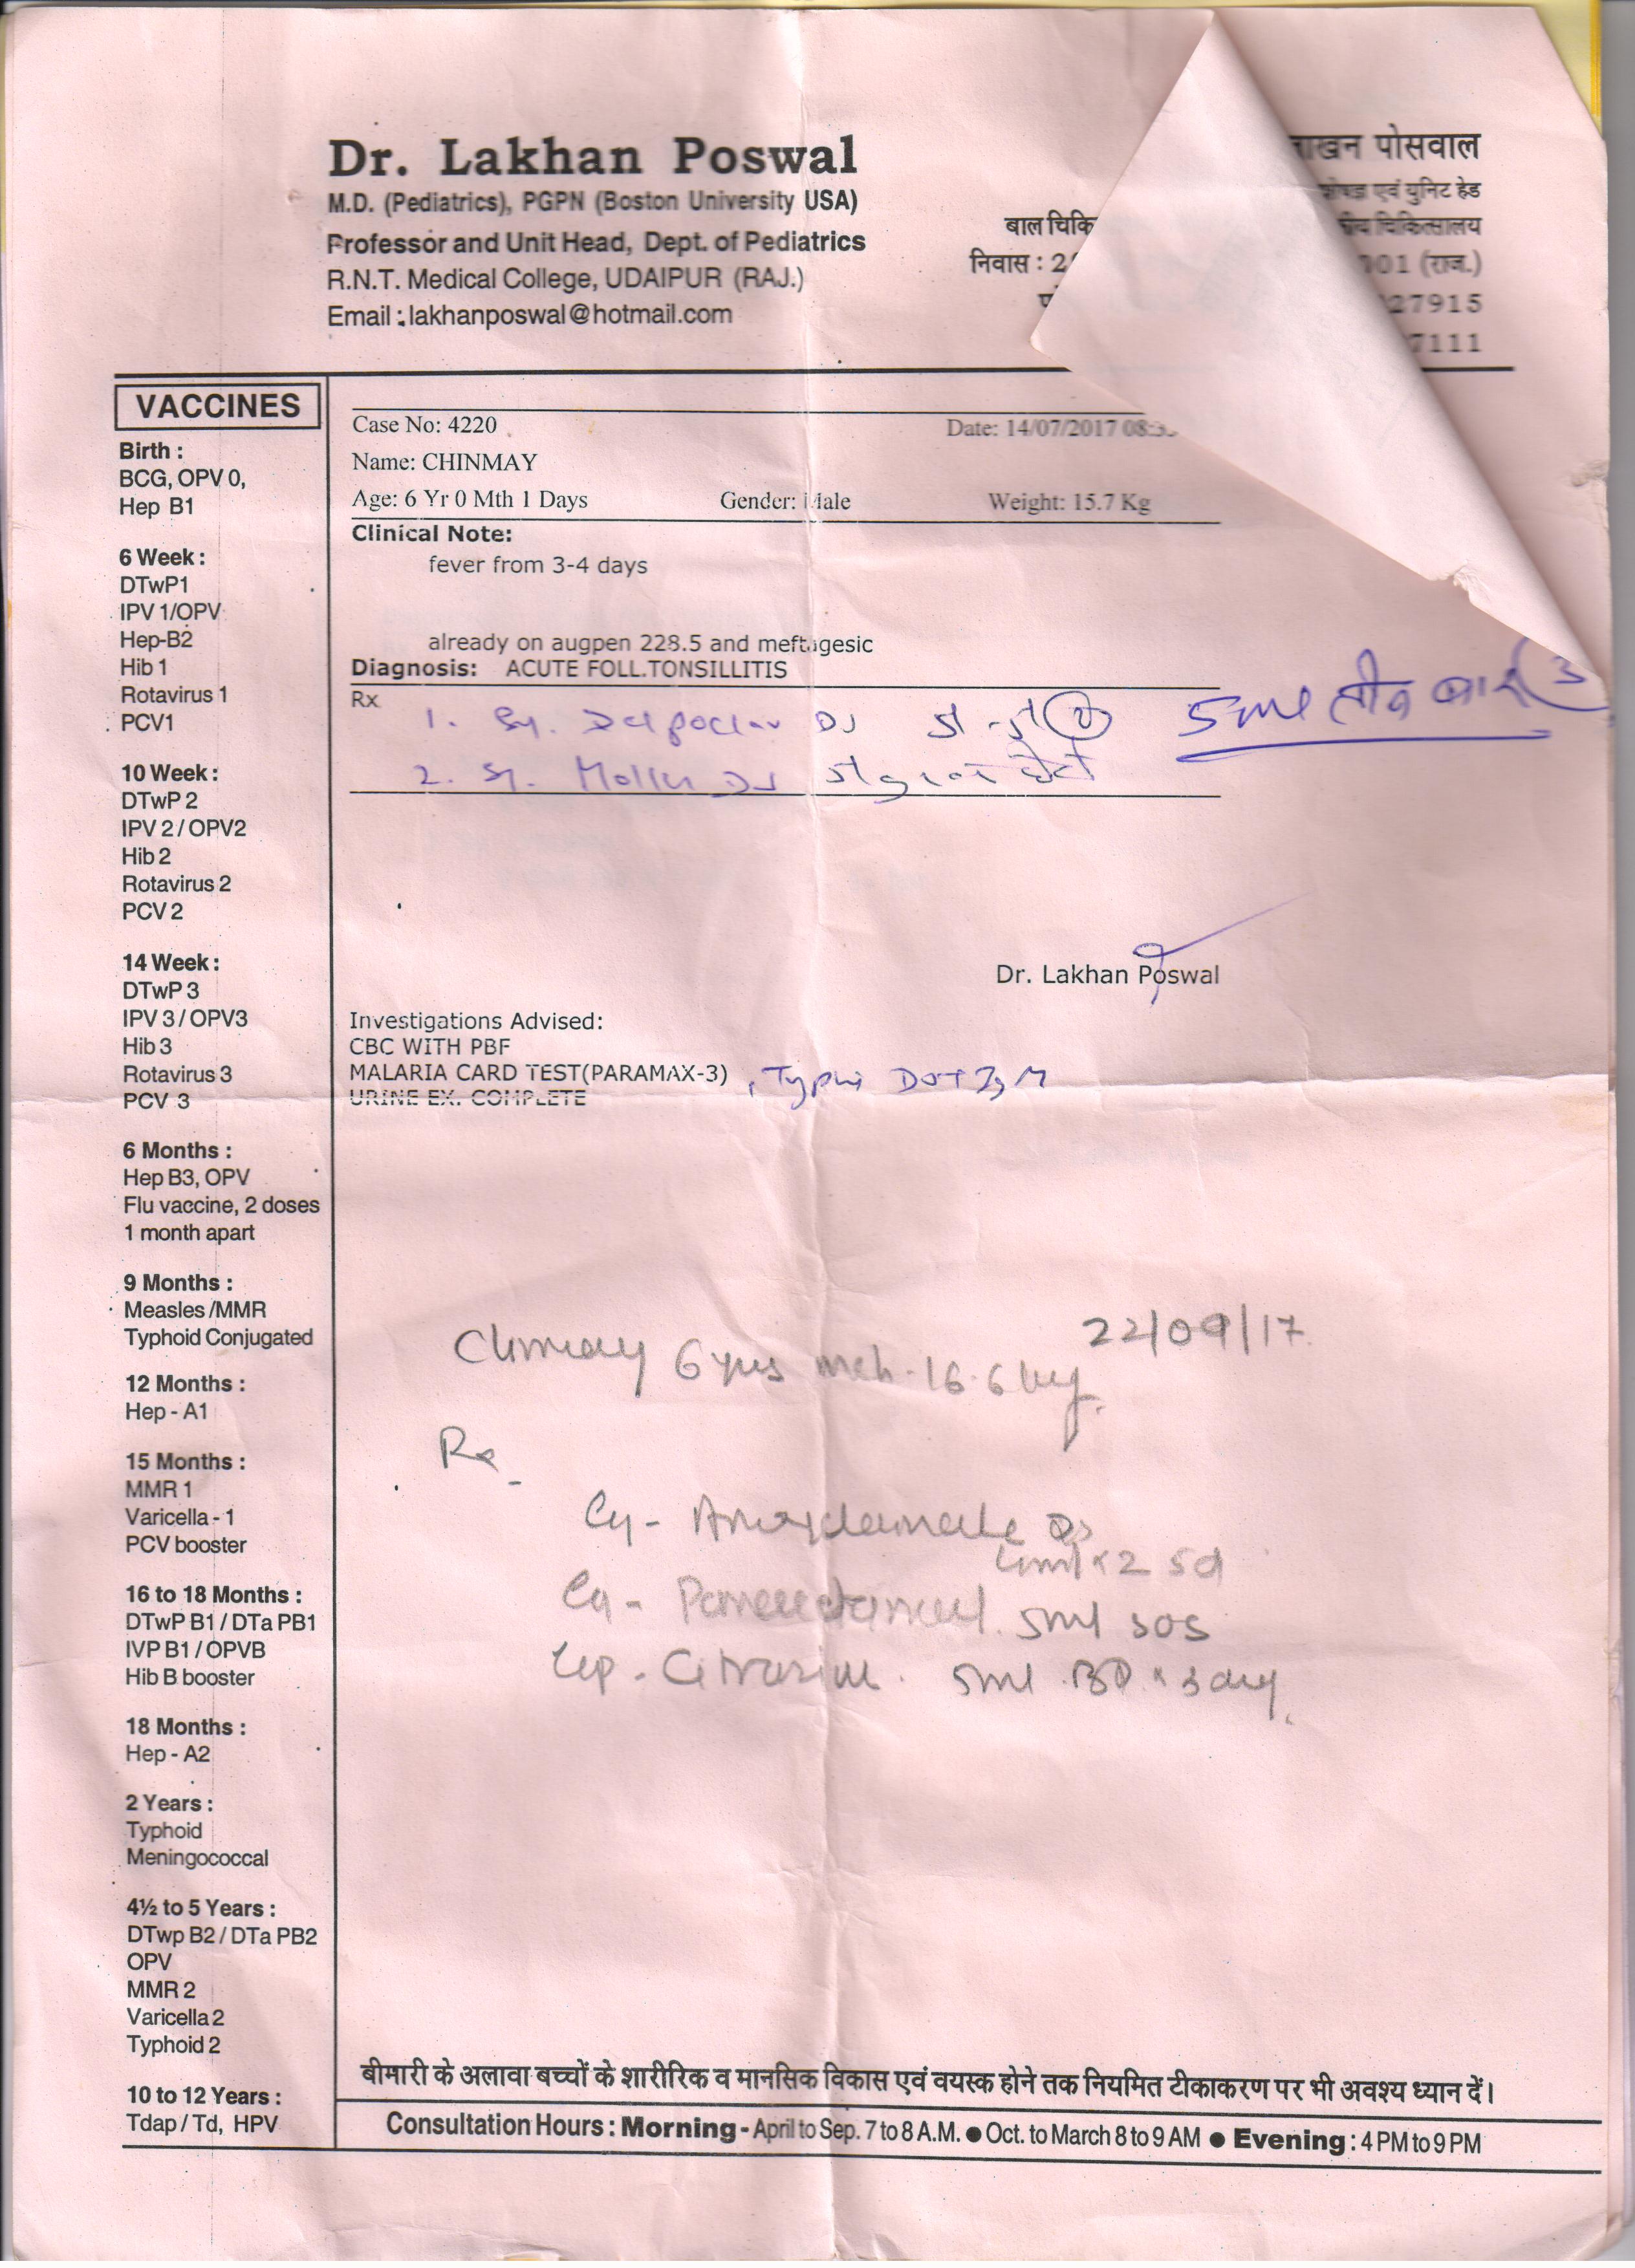 Dr. Lakhan Poswal
M.D. (Pediatrics), PGPN (Boston University USA)
Professor and Unit Head, Dept. of Pediatrics
R.N.T. Medical College, UDAIPUR (RAJ.)
Email : lakhanposwal@hotmail.com
पोसवाल
एवं युनिट हेड
बाल चिकि
चिकित्सालय
निवास : 2
001 (राज.)
27915
7111
VACCINES
Birth :
BCG, OPV 0,
Hep B1
6 Week :
DTwP1
IPV 1/OPV
Hep-B2
Hib 1
Rotavirus 1
PCV1
10 Week :
DTwP 2
IPV 2 / OPV2
Hib 2
Rotavirus 2
PCV 2
14 Week :
DTwP 3
IPV 3 / OPV3
Hib 3
Rotavirus 3
PCV 3
6 Months :
Hep B3, OPV
Flu vaccine, 2 doses
1 month apart
9 Months :
Measles /MMR
Typhoid Conjugated
12 Months :
Hep - A1
15 Months :
MMR 1
Varicella - 1
PCV booster
16 to 18 Months :
DTwP B1 / DTa PB1
IVP B1 / OPVB
Hib B booster
18 Months :
Hep - A2
2 Years :
Typhoid
Meningococcal
4½ to 5 Years :
DTwp B2 / DTa PB2
OPV
MMR 2
Varicella 2
Typhoid 2
10 to 12 Years :
Tdap / Td, HPV
Case No: 4220 Date: 14/07/2017 08:3
Name: CHINMAY
Age: 6 Yr 0 Mth 1 Days Gender: Male Weight: 15.7 Kg
Clinical Note:
fever from 3-4 days
already on augpen 228.5 and meftagesic
Diagnosis: ACUTE FOLL.TONSILLITIS
Rx
1. Sy. DS 5ml तीन बार
2. Sy. DS
Dr. Lakhan Poswal
Investigations Advised:
CBC WITH PBF
MALARIA CARD TEST(PARAMAX-3) , Typhi DOT IgM
URINE EX. COMPLETE
22/09/17
Chinmay 6 yrs mch. 16.6 kg
Rx
DS
x 2 5d
5ml SOS
5ml BD x 3 day
बीमारी के अलावा बच्चों के शारीरिक व मानसिक विकास एवं वयस्क होने तक नियमित टीकाकरण पर भी अवश्य ध्यान दें।
Consultation Hours : Morning - April to Sep. 7 to 8 A.M. ● Oct. to March 8 to 9 AM ● Evening : 4 PM to 9 PM